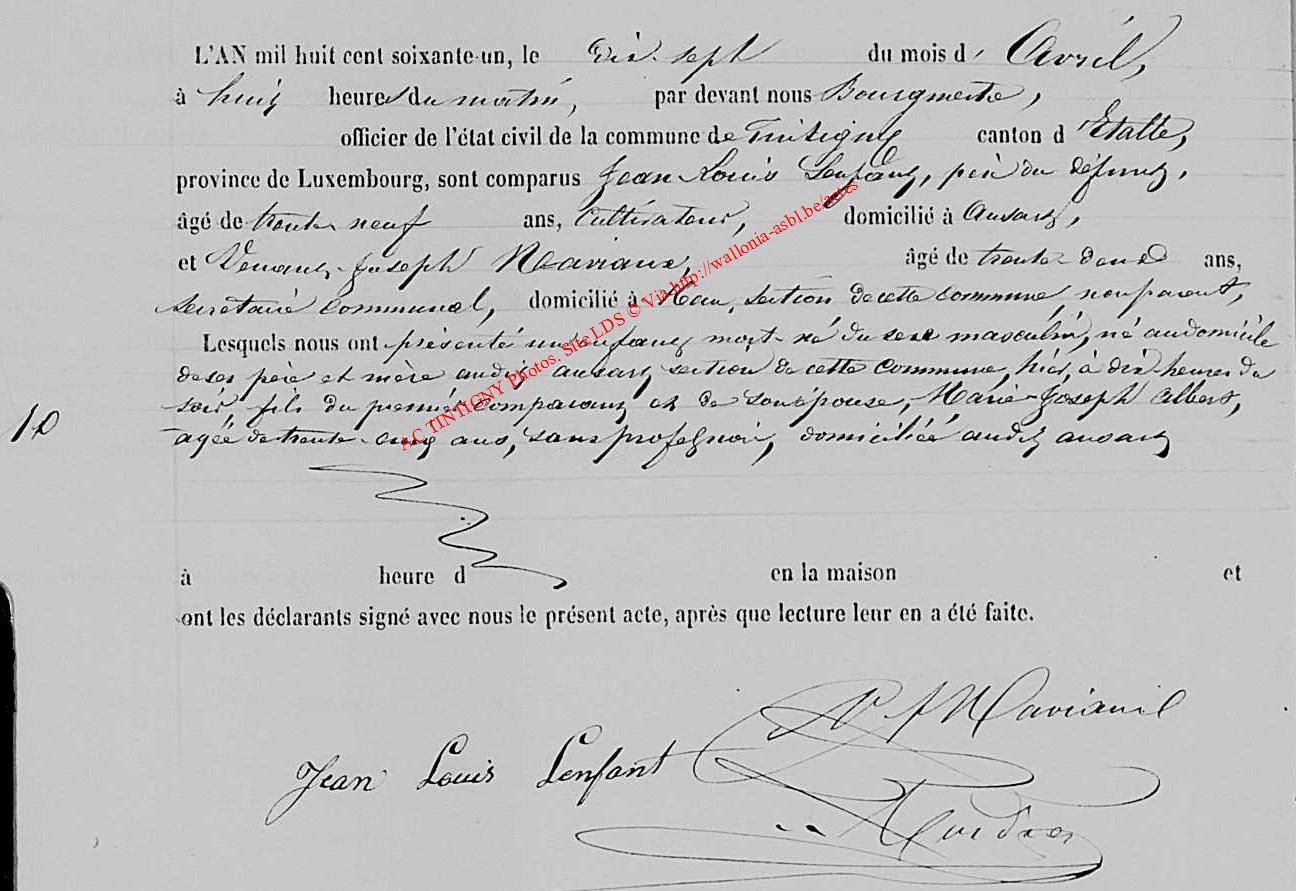 L'AN mil huit cent soixante-un, le dix-sept du mois d' Avril,
à huit heures du matin, par devant nous Bourgmestre,
officier de l'état civil de la commune de Tintigny canton d' Etalle,
province de Luxembourg, sont comparus Jean Louis Lenfant, père du défunt,
âgé de trente neuf ans, cultivateur, domicilié à Ansart,
et Venant-Joseph âgé de trente-deux ans,
secrétaire communal, domicilié à section de cette commune, non parent,
Lesquels nous ont présenté un enfant mort-né du sexe masculin, né au domicile
de ses père et mère audit Ansart, section de cette commune, hier, à dix heures du
soir, fils du premier comparant et de son épouse, Marie-Joseph Albert,
10
agée de trente-cinq ans, sans profession, domiciliée audit Ansart
à heure d en la maison et
ont les déclarants signé avec nous le présent acte, après que lecture leur en a été faite.
Jean Louis Lenfant
AC TINTIGNY Photos. Site LDS © Via http://wallonia-asbl.be/actes